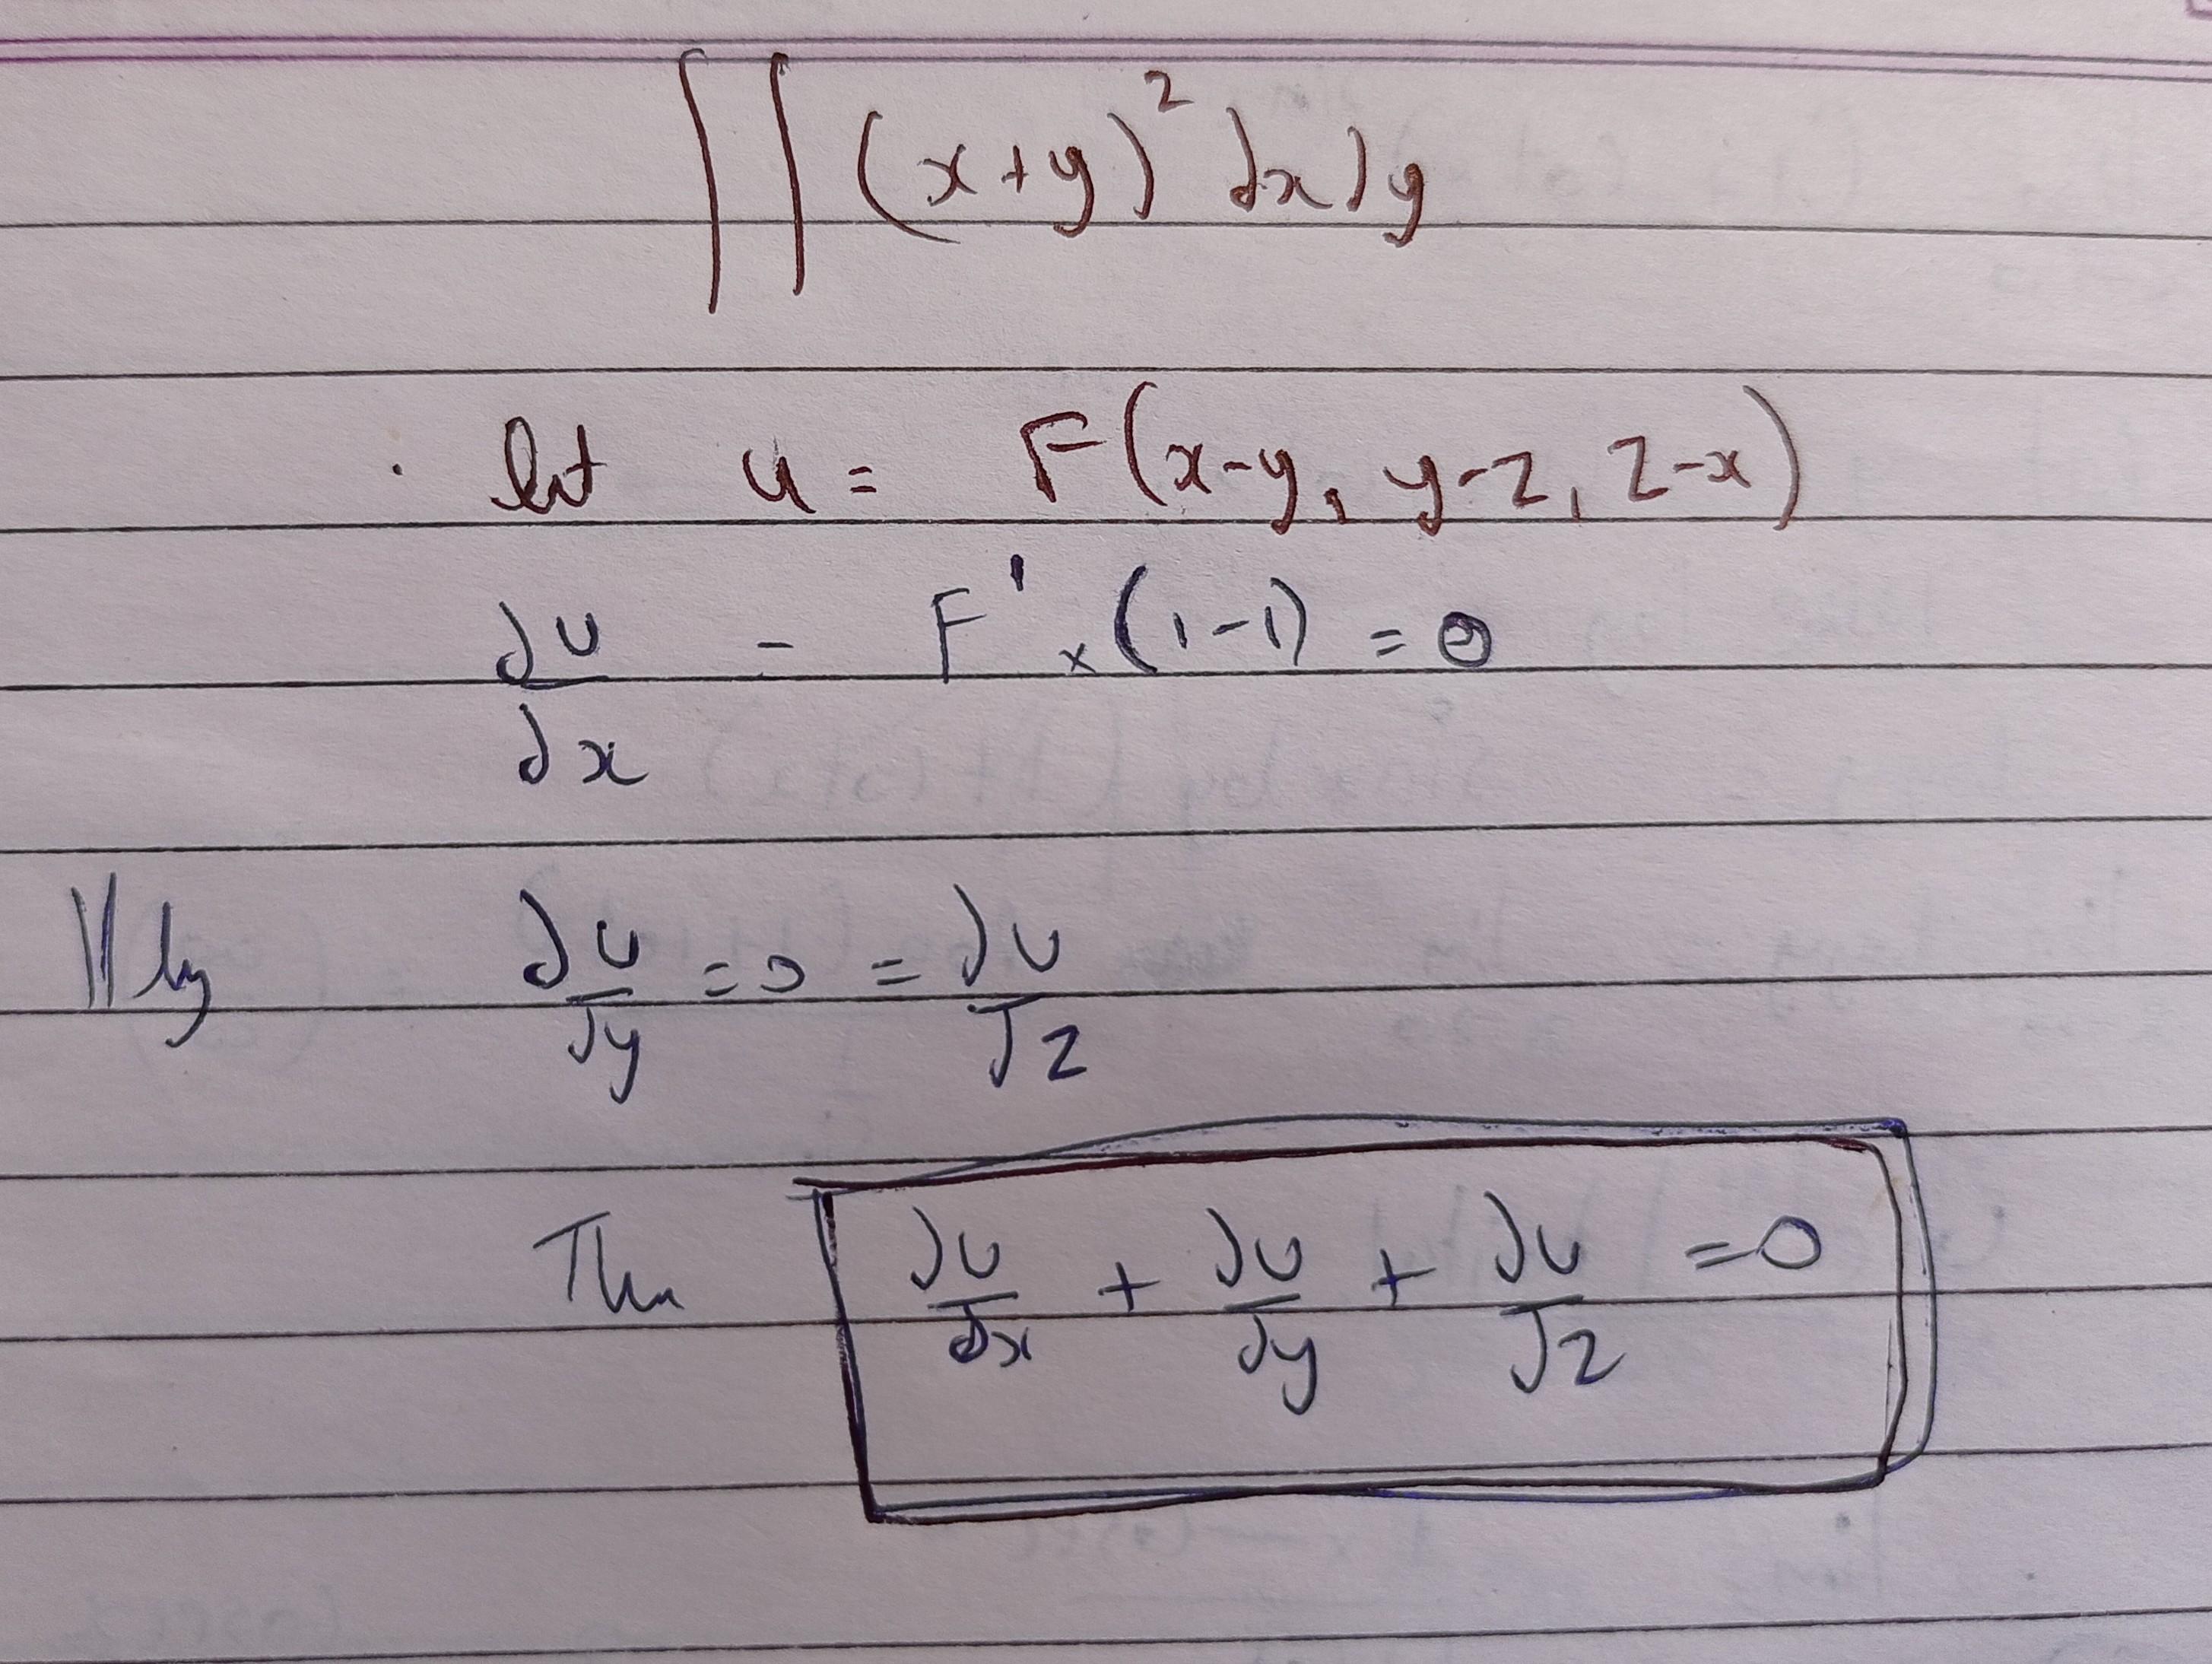 ∫∫ (x+y)² dxdy
. let u = F(x-y, y-z, z-x)
∂u/∂x = F' × (1-1) = 0
||ly ∂u/∂y = 0 = ∂u/∂z
Then ∂u/∂x + ∂u/∂y + ∂u/∂z = 0